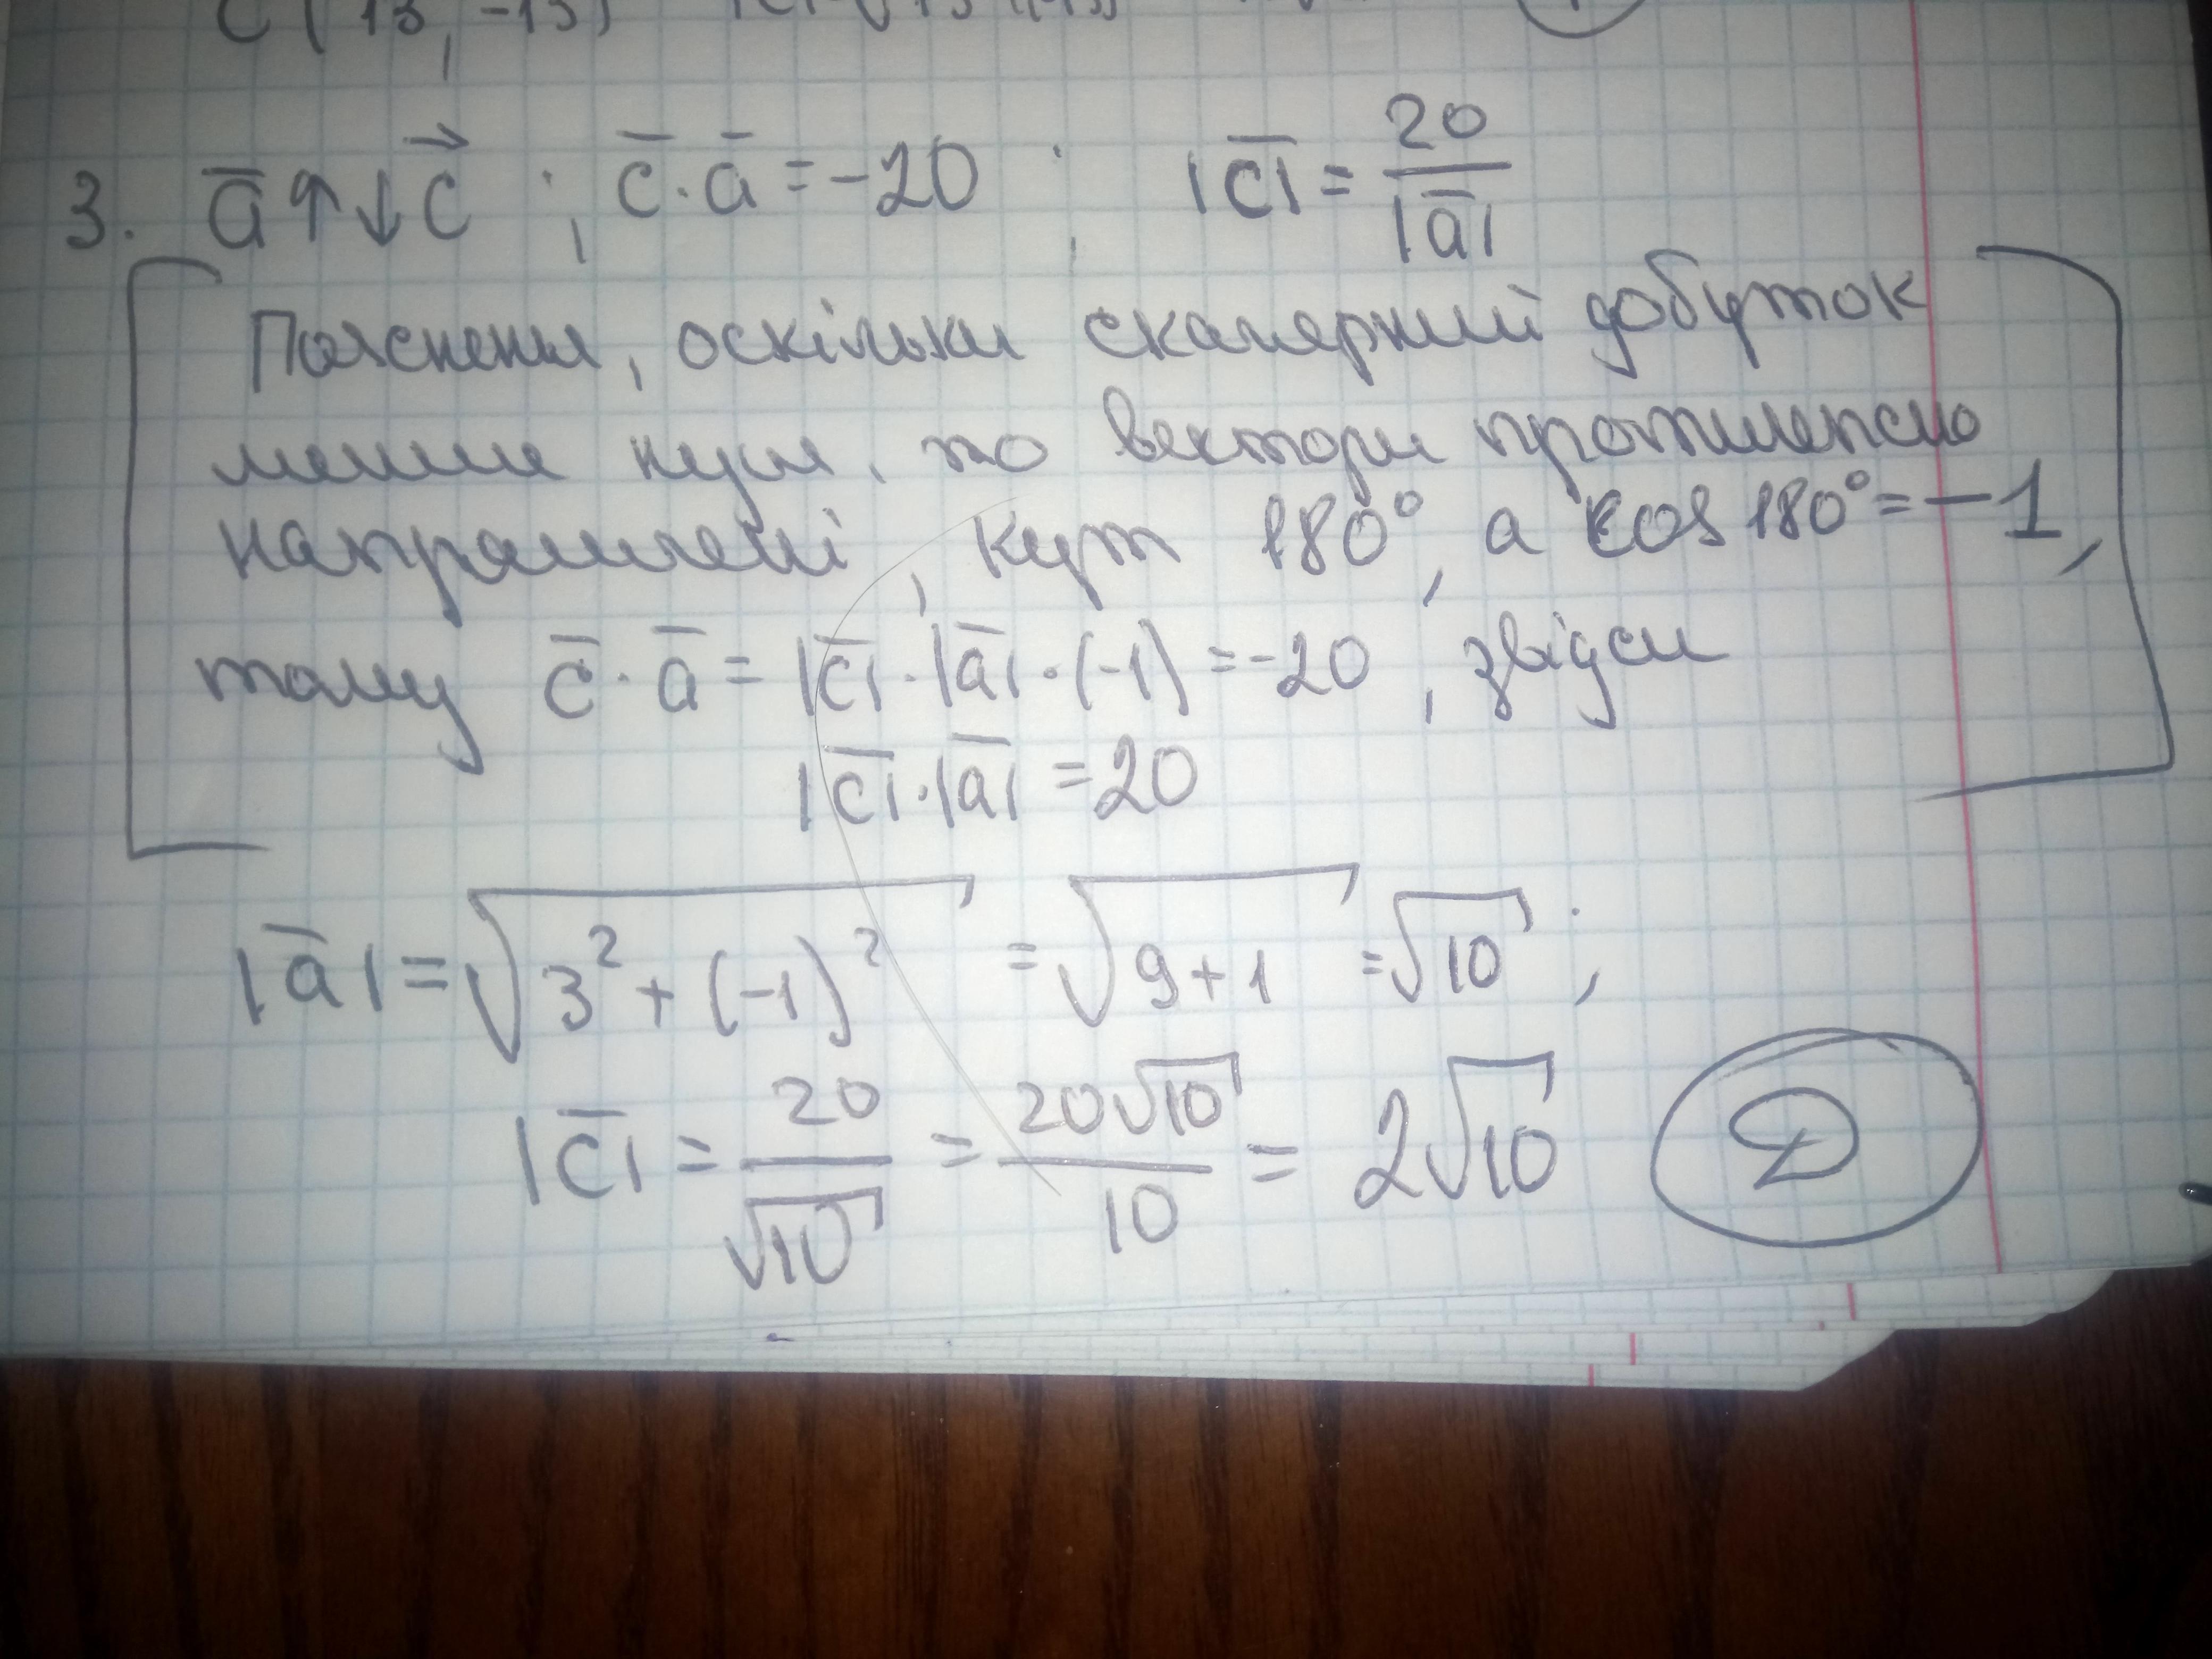 C (13; -13)
3. a̅ ↑↓ c⃗ ; c̅ · a̅ = -20 ; |c̅| = 20/|a̅|
Пояснення, оскільки скалярний добуток
менше нуля, то вектори протилежно
напрямлені, кут 180°, а cos 180° = -1,
тому c̅ · a̅ = |c̅| · |a̅| · (-1) = -20, звідси
|c̅| · |a̅| = 20
|a̅| = √(3² + (-1)²) = √(9+1) = √10 ;
|c̅| = 20/√10 = 20√10/10 = 2√10 Д